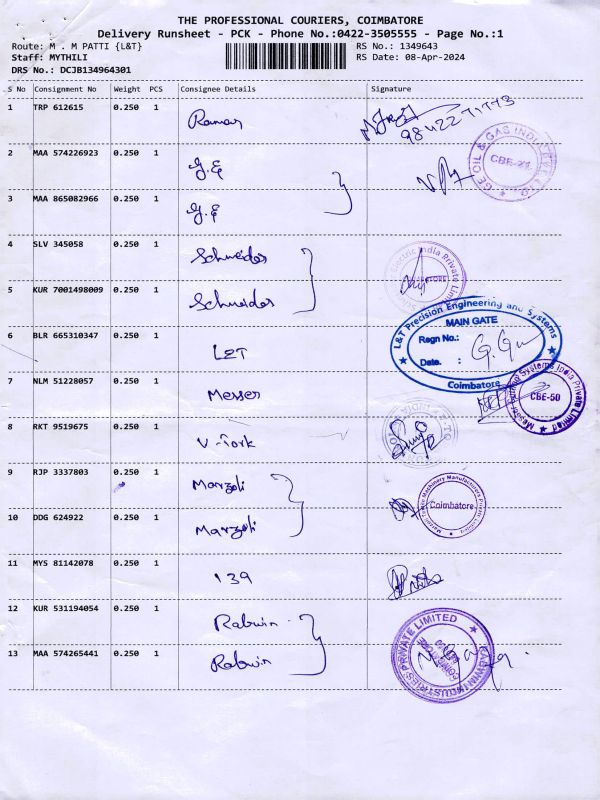 THE PROFESSIONAL COURIERS, COIMBATORE
Delivery Runsheet - PCK - Phone No.:0422-3505555 - Page No.:1
Route: M . M PATTI {L&T} RS No.: 1349643
Staff: MYTHILI RS Date: 08-Apr-2024
DRS No.: DCJB134964301
S No Consignment No Weight PCS Consignee Details Signature
1 TRP 612615 0.250 1 Raman
2 MAA 574226923 0.250 1 G.E
GE OIL & GAS INDIA
CBE-21
3 MAA 865082966 0.250 1 G.E
4 SLV 345058 0.250 1 Schneider
Electric India Private
5 KUR 7001498009 0.250 1 Schneider
L&T Precision Engineering and Systems
MAIN GATE
Regn No.:
6 BLR 665310347 0.250 1 L&T
Date. :
Coimbatore
7 NLM 51228057 0.250 1 Messer
Systems India Private Limited
CBE-50
8 RKT 9519675 0.250 1 V-Tork
9 RJP 3337803 0.250 1 Marzoli
Machinery Manufacturers Private Limited
Coimbatore
10 DDG 624922 0.250 1 Marzoli
11 MYS 81142078 0.250 1 139
12 KUR 531194054 0.250 1 Rabwin
RABWIN INDUSTRIES PRIVATE LIMITED
13 MAA 574265441 0.250 1 Rabwin